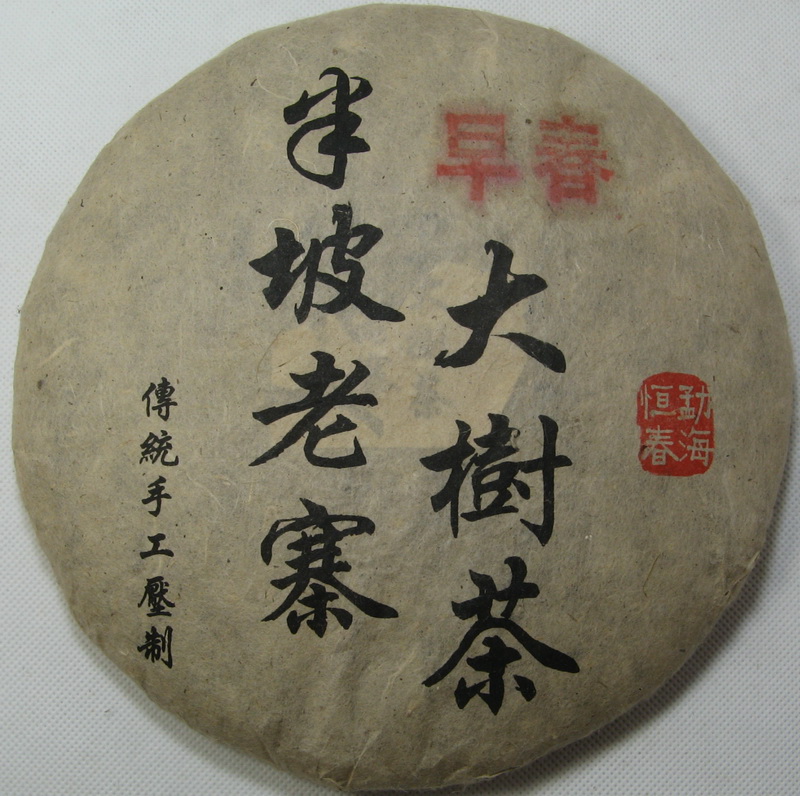 早春
勐海
恒春
大樹茶
半坡老寨
傳統手工壓制